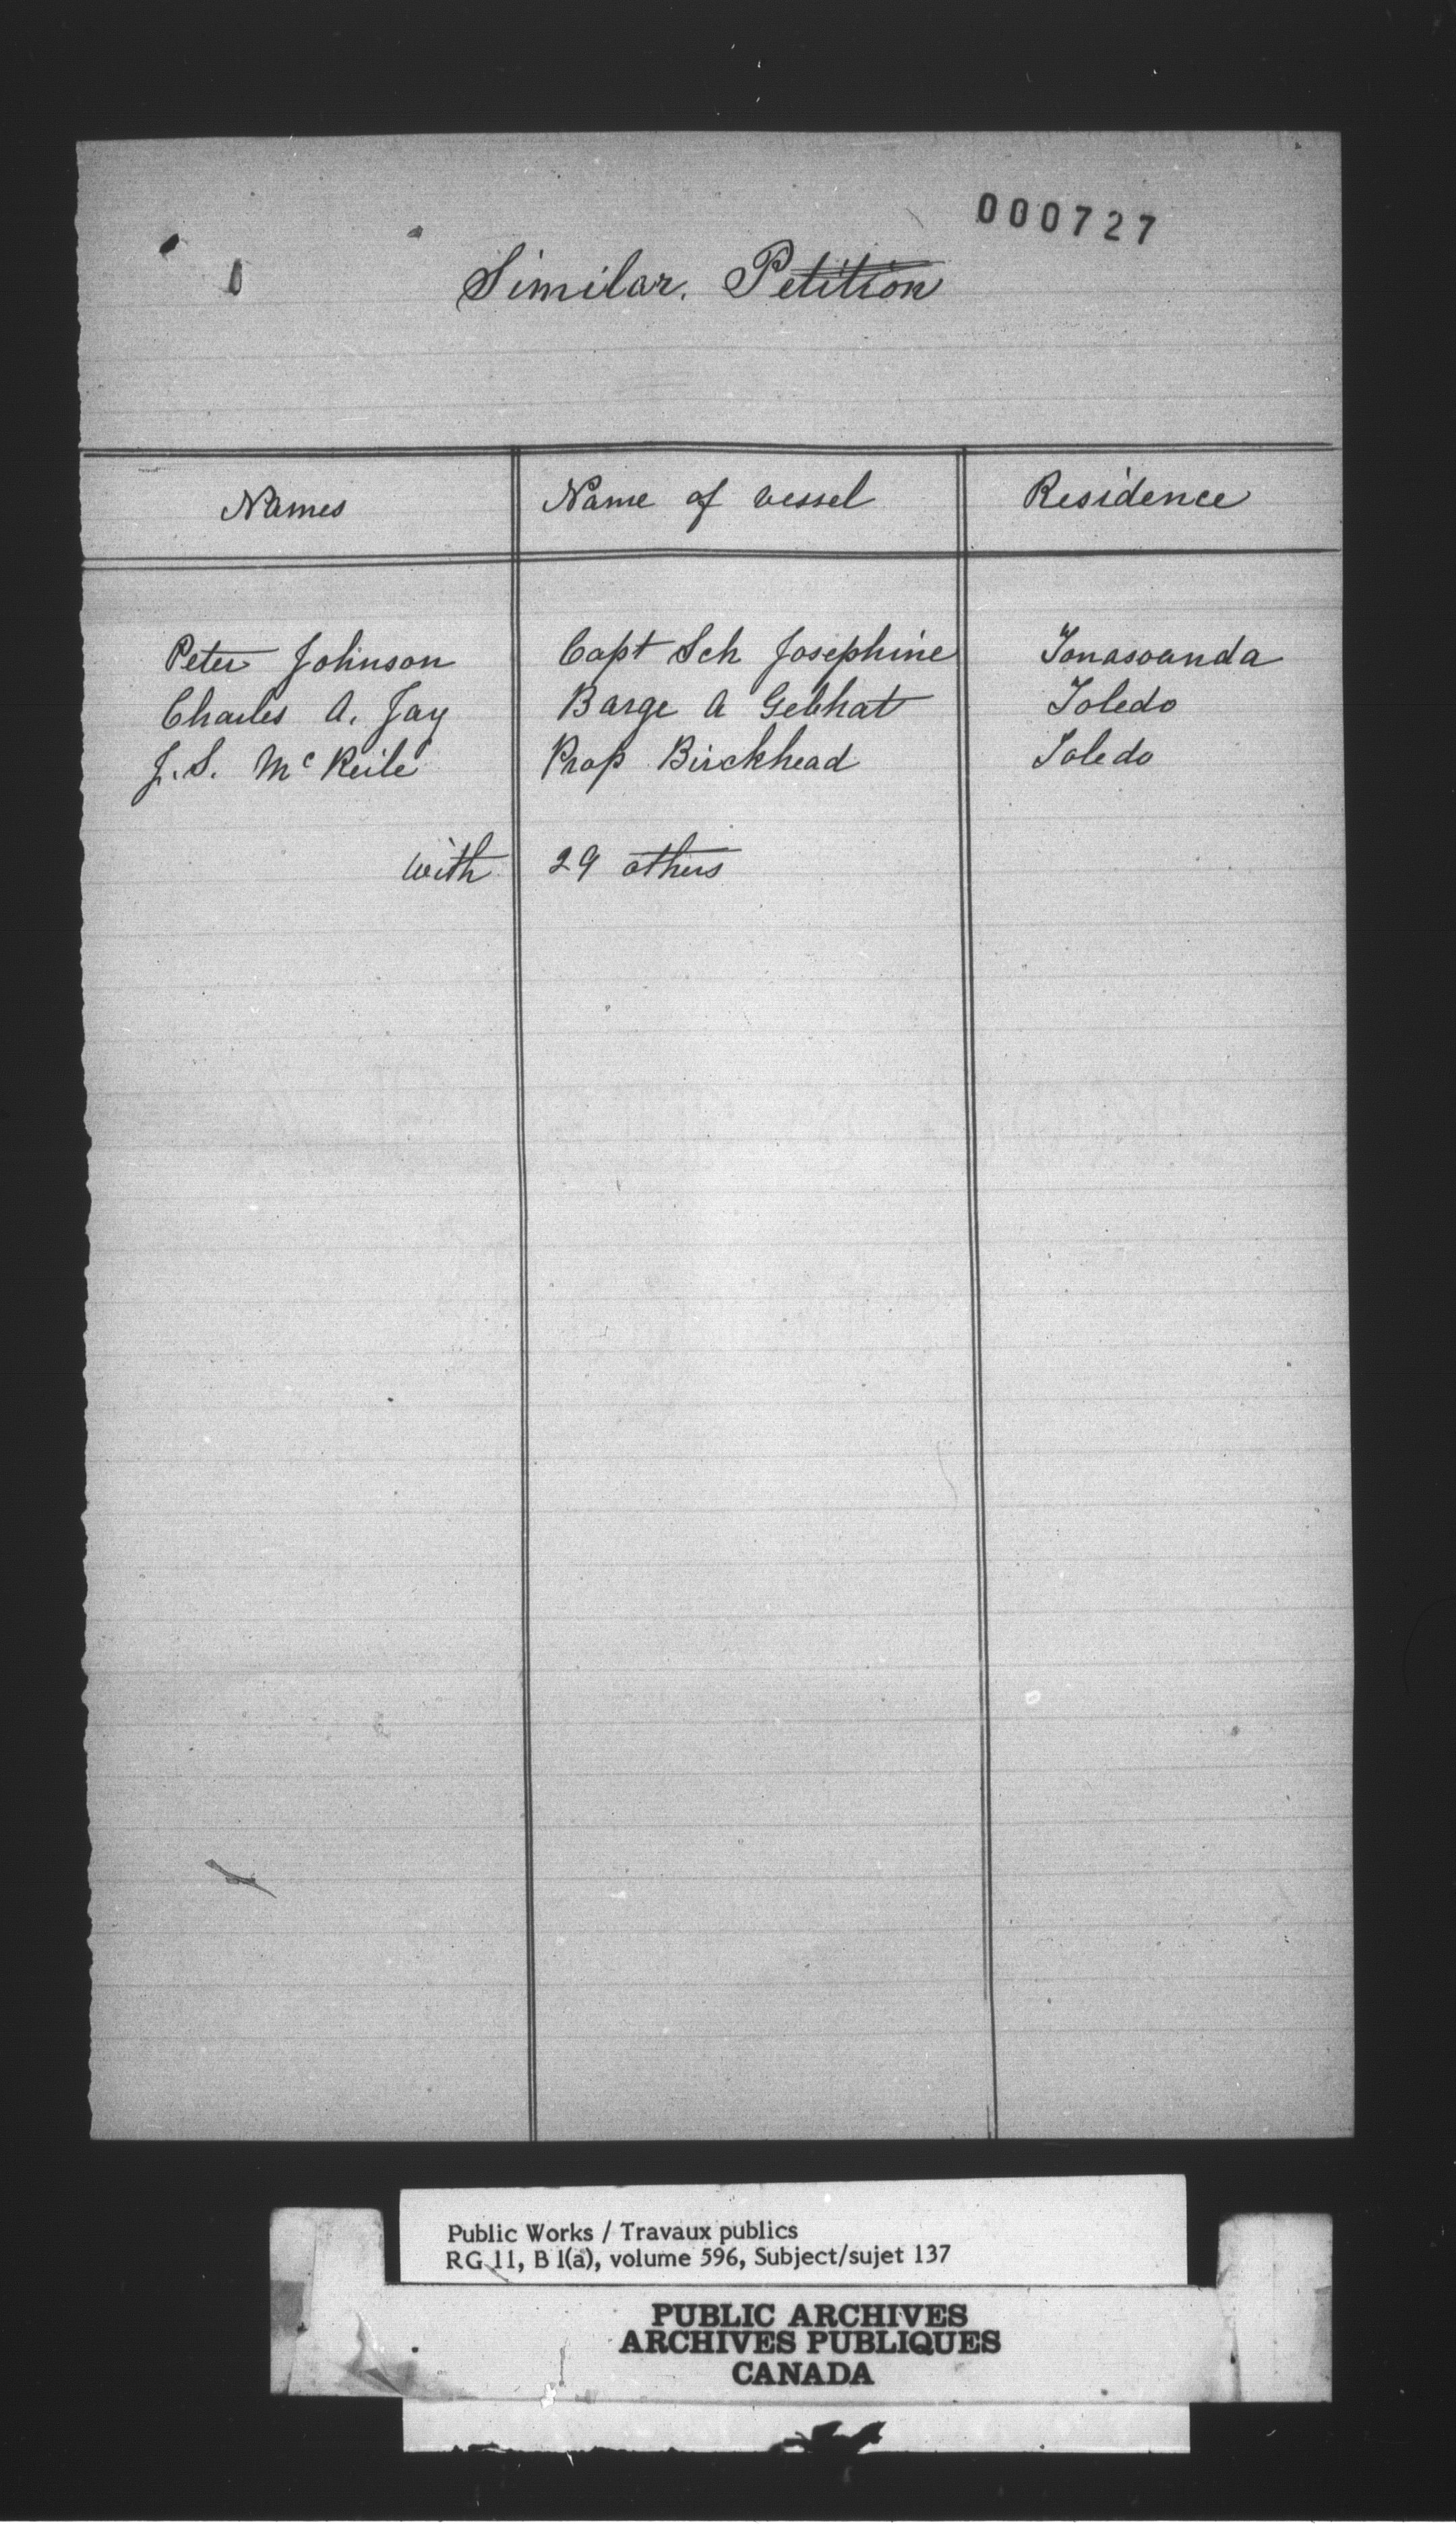 000727
Similar. Petition
Names Name of vessel Residence
Peter Johnson Capt Sch Josephine Tonasoanda
Charles A. Jay Barge A Gebhat Toledo
J. S. McKeile Prop Birckhead Toledo
with 29 others
Public Works / Travaux publics
RG 11, B 1(a), volume 596, Subject/sujet 137
PUBLIC ARCHIVES
ARCHIVES PUBLIQUES
CANADA